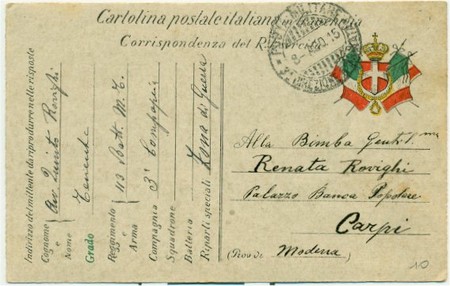 Cartolina postale italiana in franchigia
Corrispondenza del R. Esercito
POSTA MILITARE
8-
10.15
DIVISIONE
Indirizzo del mittente da riprodurre nelle risposte
Cognome e Nome Rovighi
Grado Tenente
Reggimento e Arma 113 Batt. M. T.
Compagnia 3ª Compagnia
Squadrone
Batteria
Riparti speciali Zona di Guerra
Alla Bimba Gent.ma
Renata Rovighi
Palazzo Banca Popolare
Carpi
(Prov. di Modena
10